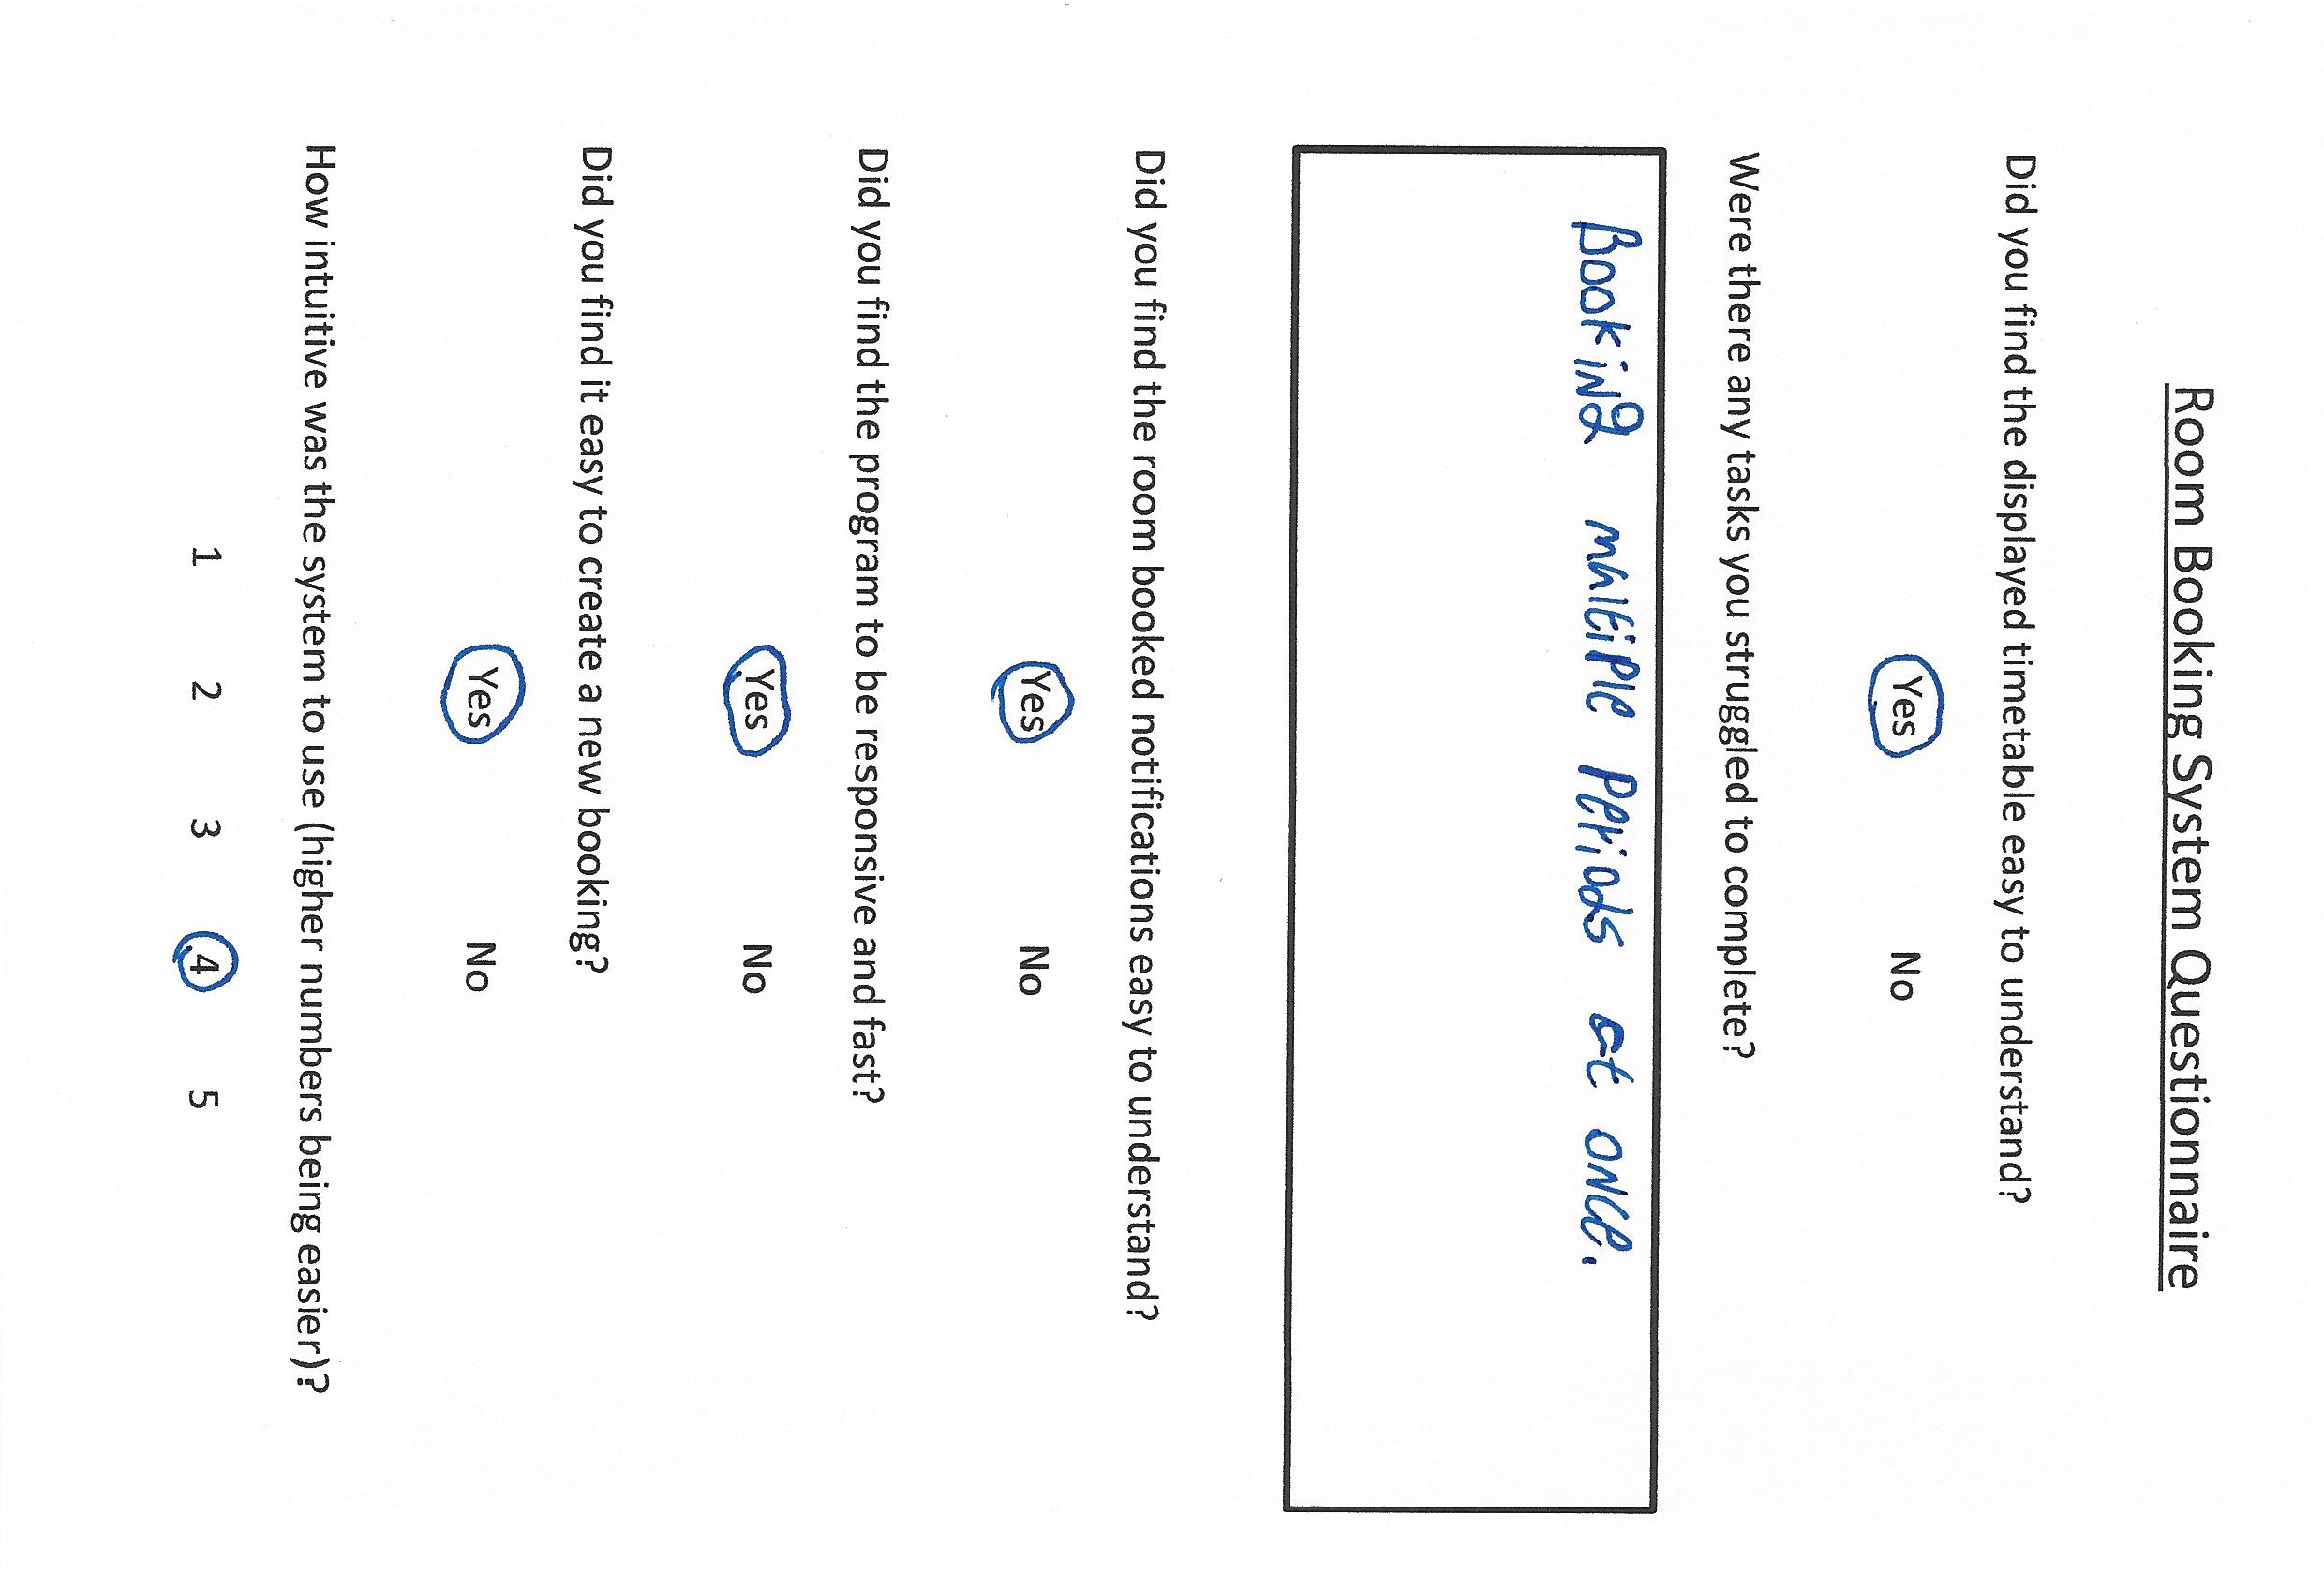 Room Booking System Questionnaire
Did you find the displayed timetable easy to understand?
Yes No
Were there any tasks you struggled to complete?
Booking multiple periods at once.
Did you find the room booked notifications easy to understand?
Yes No
Did you find the program to be responsive and fast?
Yes No
Did you find it easy to create a new booking?
Yes No
How intuitive was the system to use (higher numbers being easier)?
1 2 3 4 5